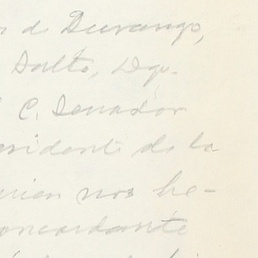 o de Durango,
Salto, Dgo.
C. Senador
esidente de la
uien nos he-
oncordante